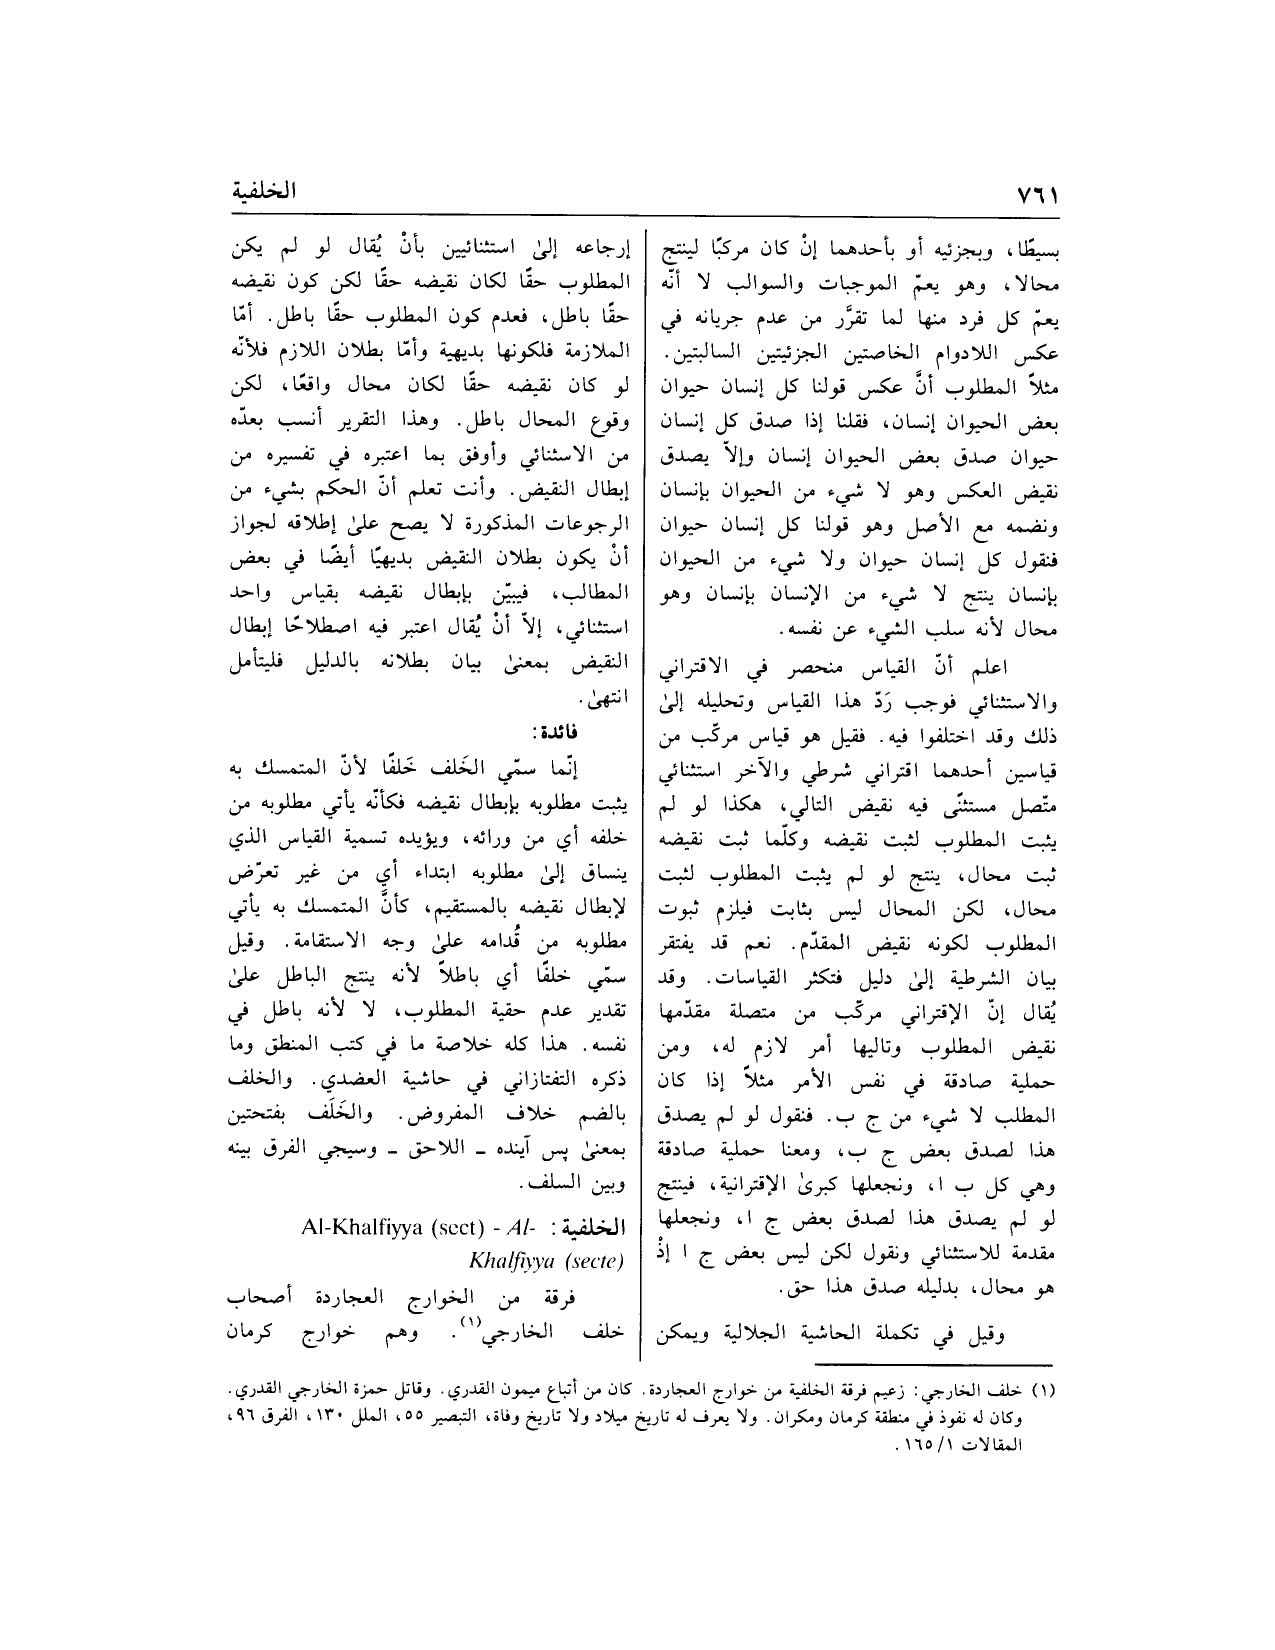 ٧٦١
الخلفية
بسيطًا، وبجزئيه أو بأحدهما إنْ كان مركبًا لينتج
محالا، وهو يعمّ الموجبات والسوالب لا أنّه
يعمّ كل فرد منها لما تقرَّر من عدم جريانه في
عكس اللادوام الخاصتين الجزئيتين السالبتين.
مثلاً المطلوب أنَّ عكس قولنا كل إنسان حيوان
بعض الحيوان إنسان، فقلنا إذا صدق كل إنسان
حيوان صدق بعض الحيوان إنسان وإلاّ يصدق
نقيض العكس وهو لا شيء من الحيوان بإنسان
ونضمه مع الأصل وهو قولنا كل إنسان حيوان
فنقول كل إنسان حيوان ولا شيء من الحيوان
بإنسان ينتج لا شيء من الإنسان بإنسان وهو
محال لأنه سلب الشيء عن نفسه.
اعلم أنّ القياس منحصر في الاقتراني
والاستثنائي فوجب رَدّ هذا القياس وتحليله إلىٰ
ذلك وقد اختلفوا فيه. فقيل هو قياس مركّب من
قياسين أحدهما اقتراني شرطي والآخر استثنائي
متّصل مستثنًى فيه نقيض التالي، هكذا لو لم
يثبت المطلوب لثبت نقيضه وكلّما ثبت نقيضه
ثبت محال، ينتج لو لم يثبت المطلوب لثبت
محال، لكن المحال ليس بثابت فيلزم ثبوت
المطلوب لكونه نقيض المقدّم. نعم قد يفتقر
بيان الشرطية إلىٰ دليل فتكثر القياسات. وقد
يُقال إنّ الإقتراني مركّب من متصلة مقدّمها
نقيض المطلوب وتاليها أمر لازم له، ومن
حملية صادقة في نفس الأمر مثلاً إذا كان
المطلب لا شيء من ج ب. فنقول لو لم يصدق
هذا لصدق بعض ج ب، ومعنا حملية صادقة
وهي كل ب ا، ونجعلها كبرىٰ الإقترانية، فينتج
لو لم يصدق هذا لصدق بعض ج ا، ونجعلها
مقدمة للاستثنائي ونقول لكن ليس بعض ج ا إذْ
هو محال، بدليله صدق هذا حق.
وقيل في تكملة الحاشية الجلالية ويمكن
إرجاعه إلىٰ استثنائيين بأنْ يُقال لو لم يكن
المطلوب حقًا لكان نقيضه حقًا لكن كون نقيضه
حقًا باطل، فعدم كون المطلوب حقًا باطل. أمّا
الملازمة فلكونها بديهية وأمّا بطلان اللازم فلأنّه
لو كان نقيضه حقًا لكان محال واقعًا، لكن
وقوع المحال باطل. وهذا التقرير أنسب بعدّه
من الاستثنائي وأوفق بما اعتبره في تفسيره من
إبطال النقيض. وأنت تعلم أنّ الحكم بشيء من
الرجوعات المذكورة لا يصح علىٰ إطلاقه لجواز
أنْ يكون بطلان النقيض بديهيًا أيضًا في بعض
المطالب، فيبيّن بإبطال نقيضه بقياس واحد
استثنائي، إلاّ أنْ يُقال اعتبر فيه اصطلاحًا إبطال
النقيض بمعنىٰ بيان بطلانه بالدليل فليتأمل
انتهىٰ.
فائدة:
إنّما سمّي الخَلف خَلفًا لأنّ المتمسك به
يثبت مطلوبه بإبطال نقيضه فكأنّه يأتي مطلوبه من
خلفه أي من ورائه، ويؤيده تسمية القياس الذي
ينساق إلىٰ مطلوبه ابتداء أي من غير تعرّض
لإبطال نقيضه بالمستقيم، كأنَّ المتمسك به يأتي
مطلوبه من قُدامه علىٰ وجه الاستقامة. وقيل
سمّي خلفًا أي باطلاً لأنه ينتج الباطل علىٰ
تقدير عدم حقية المطلوب، لا لأنه باطل في
نفسه. هذا كله خلاصة ما في كتب المنطق وما
ذكره التفتازاني في حاشية العضدي. والخلف
بالضم خلاف المفروض. والخَلَف بفتحتين
بمعنىٰ پس آينده ـ اللاحق ـ وسيجي الفرق بينه
وبين السلف.
الخلفية: Al-Khalfiyya (sect) - Al-
Khalfiyya (secte)
فرقة من الخوارج العجاردة أصحاب
خلف الخارجي(١). وهم خوارج كرمان
(١) خلف الخارجي: زعيم فرقة الخلفية من خوارج العجاردة. كان من أتباع ميمون القدري. وقاتل حمزة الخارجي القدري.
وكان له نفوذ في منطقة كرمان ومكران. ولا يعرف له تاريخ ميلاد ولا تاريخ وفاة، التبصير ٥٥، الملل ١٣٠، الفرق ٩٦،
المقالات ١/ ١٦٥.